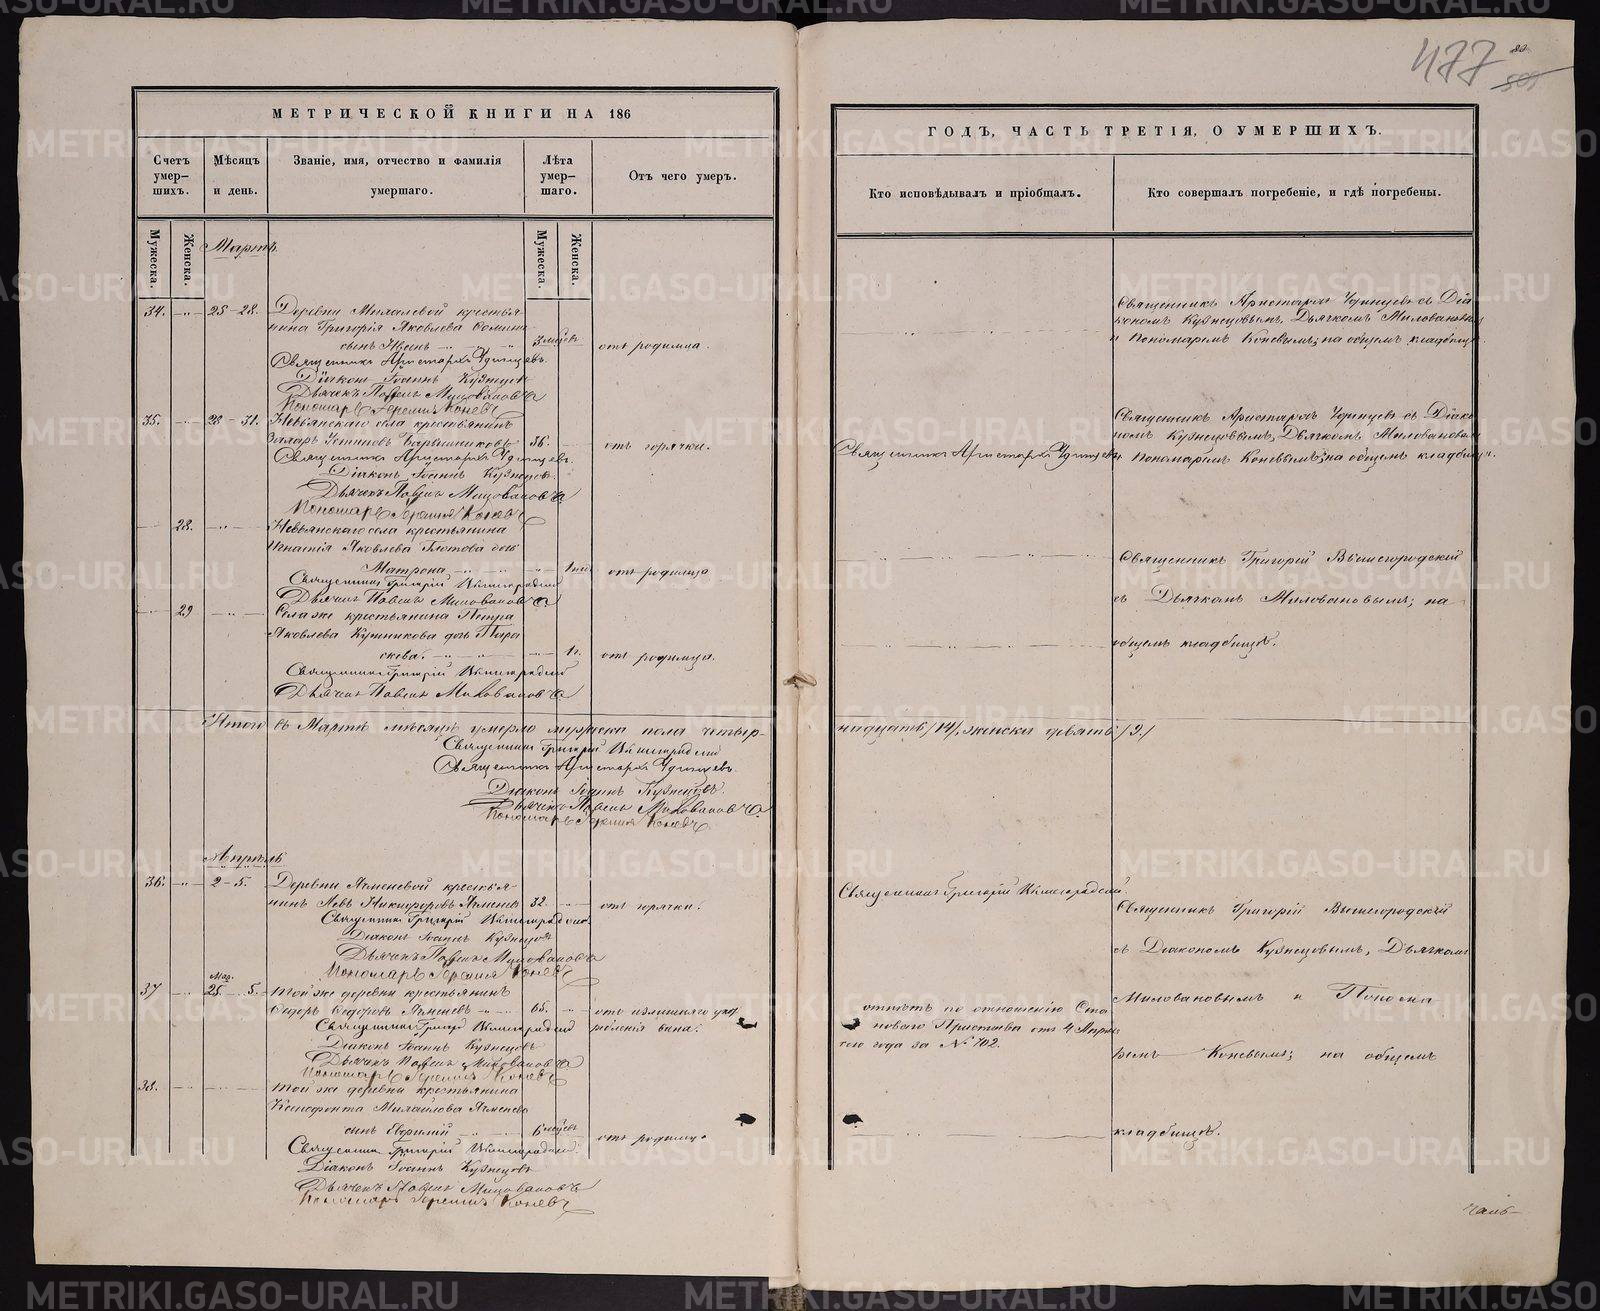 477
80
505
МЕТРИЧЕСКОЙ КНИГИ НА 186
Счетъ умер-шихъ.
Мѣсяцъ и день.
Званіе, имя, отчество и фамилія умершаго.
Лѣта умер-шаго.
Отъ чего умеръ.
Мужеска.
Женска.
Мужеска.
Женска.
Мартъ
34. 25-28. Деревни крестья-
нина Григорія Яковлева
сынъ 3 мѣсяц. отъ родимца.
Священникъ Аристархъ Удинцевъ.
Діаконъ Іоаннъ Кузнецовъ
Дьячекъ Павелъ Миловановъ
Пономарь Іеремія Коневъ
35. 28-31. Невьянскаго села крестьянинъ
Устиновъ Барышниковъ 36. отъ горячки.
Священникъ Аристархъ Удинцевъ.
Діаконъ Іоаннъ Кузнецовъ.
Дьячекъ Павелъ Миловановъ
Пономарь Іеремія Коневъ
28. Невьянскаго села крестьянина
Игнатія Яковлева дочь
Матрона отъ родимца
Священникъ Григорій Вышегородскій
Дьячекъ Павелъ Миловановъ
29 Села же крестьянина Петра
Яковлева дочь Пара
скева. 1 г. отъ родимца.
Священникъ Григорій Вышегородскій
Дьячекъ Павелъ Миловановъ
Итого въ Мартѣ мѣсяцѣ умерло мужеска пола четыр-
Священникъ Григорій Вышегородскій
Священникъ Аристархъ Удинцевъ.
Діаконъ Іоаннъ Кузнецовъ.
Дьячекъ Павелъ Миловановъ.
Пономарь Іеремія Коневъ
Апрѣль
36. 2-5. Деревни Ячменевой крестья-
нинъ Левъ Никифоровъ Ячменев 32. отъ горячки.
Священникъ Григорій Вышегородскій
Діаконъ Іоаннъ Кузнецовъ
Дьячекъ Павелъ Миловановъ
Пономарь Іеремія Коневъ
Мар.
37 25. 5. Той же деревни крестьянинъ
Сидоръ Ѳедоровъ Ячменевъ 65. отъ излишняго упо
требленія вина.
Священникъ Григорій Вышегородскій
Діаконъ Іоаннъ Кузнецовъ
Дьячекъ Павелъ Миловановъ
Пономарь Іеремія Коневъ
38. Той же деревни крестьянина
Ксенофонта Михайлова Ячменева
сынъ Евфимій 6 мѣсяц. отъ родимца
Священникъ Григорій Вышегородскій.
Діаконъ Іоаннъ Кузнецовъ
Дьячекъ Павелъ Миловановъ
Пономарь Іеремія Коневъ
ГОДЪ, ЧАСТЬ ТРЕТІЯ, О УМЕРШИХЪ.
Кто исповѣдывалъ и пріобщалъ.
Кто совершалъ погребеніе, и гдѣ погребены.
Священникъ Аристархъ Удинцевъ съ Діа-
кономъ Кузнецовымъ, Дьячкомъ Миловановым
и Пономаремъ Коневымъ; на общемъ кладбищѣ.
Священникъ Аристархъ Удинцевъ
Священникъ Аристархъ Удинцевъ съ Діако-
номъ Кузнецовымъ, Дьячкомъ Миловановым
и Пономаремъ Коневымъ; на общемъ кладбищѣ.
Священникъ Григорій Вышегородскій
съ Дьячкомъ Миловановымъ; на
общемъ кладбищѣ.
надцать /14/, женска девять /9/
Священникъ Григорій Вышегородскій.
Священникъ Григорій Вышегородскій
съ Діакономъ Кузнецовымъ, Дьячкомъ
Миловановымъ и Понома
ремъ Коневымъ; на общемъ
кладбищѣ.
отпѣтъ по отношенію Ста
новаго Пристава отъ 4 Апрѣля
сего года за № 702.
METRIKI.GASO-URAL.RU